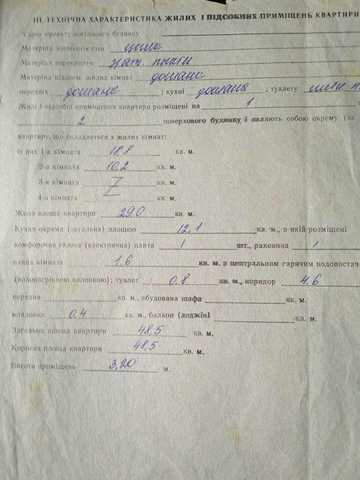 III. ТЕХНІЧНА ХАРАКТЕРИСТИКА ЖИЛИХ І ПІДСОБНИХ ПРИМІЩЕНЬ КВАРТИРИ
Серія проекту житлового будинку
Матеріал
Матеріал перекриття зал. плити
Матеріал підлоги жилих кімнат дощані
передніх дощане ; кухні дощана ; туалету
Жилі і підсобні приміщення квартири розміщені на 1
2 поверхового будинку і являють собою окрему (не
квартиру, що складається з жилих кімнат:
із них 1-а кімната 18.8 кв. м.
2-а кімната 10,2 кв. м.
3-я кімната кв. м.
4-а кімната кв. м.
Жила площа квартири 29.0 кв. м.
Кухня окрема (загальна) площею 12,1 кв. м., в якій розміщені
комфорочна газова (електрична) плита 1 шт., раковина 1
ванна кімната 1.6 кв. м. з центральним гарячим водопостач
(водонагрівною колонкою); туалет 0.8 кв. м., коридор 4.6
передня кв. м., вбудована шафа
кладовка 0.4 кв. м., балкон (лоджія)
Загальна площа квартири 48.5 кв. м.
Корисна площа квартири 48,5 кв. м.
Висота приміщень 3,20 м.